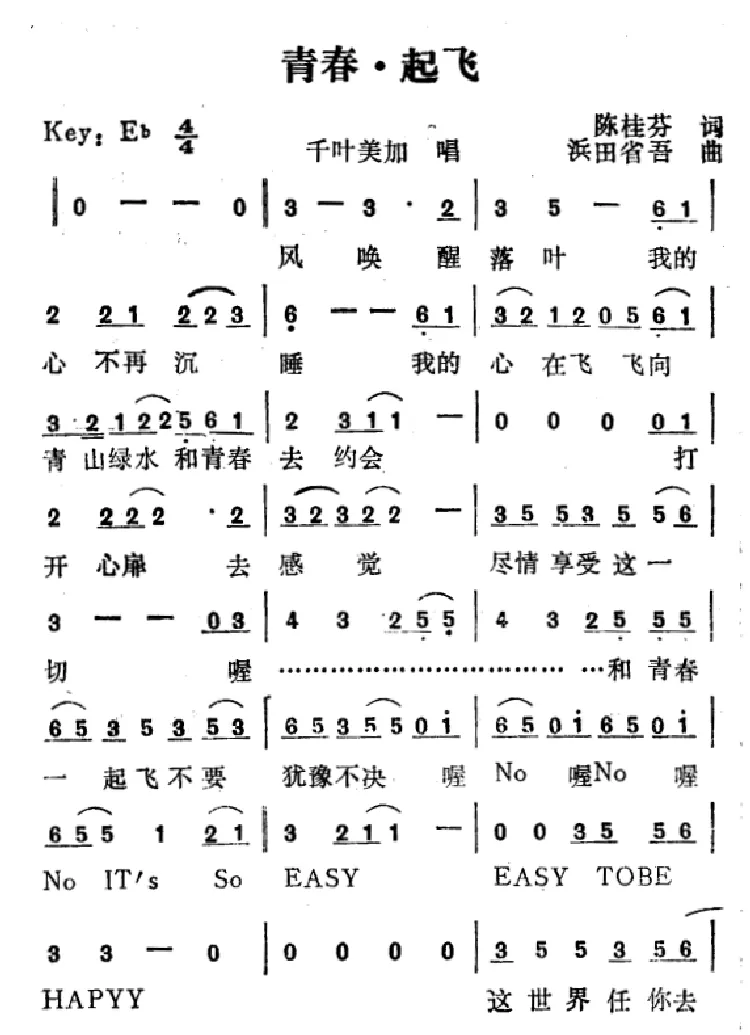 青春·起飞
Key: E♭ 4/4
陈桂芬 词
千叶美加 唱 浜田省吾 曲
0 — — 0 | 3 — 3 · 2 | 3 5 — 6 1 |
风 唤 醒 落 叶 我的
2 2 1 2 2 3 | 6 — — 6 1 | 3 2 1 2 0 5 6 1 |
心 不再 沉 睡 我的 心 在飞 飞向
3 2 1 2 2 5 6 1 | 2 3 1 1 — | 0 0 0 0 1 |
青 山绿水 和青春 去 约会 打
2 2 2 2 · 2 | 3 2 3 2 2 — | 3 5 5 3 5 5 6 |
开 心扉 去 感 觉 尽情 享受 这一
3 — — 0 3 | 4 3 2 5 5 | 4 3 2 5 5 5 |
切 喔 ………………………… …和 青春
6 5 3 5 3 5 3 | 6 5 3 5 5 0 i | 6 5 0 i 6 5 0 i |
一 起飞不要 犹豫不决 喔 No 喔No 喔
6 5 5 1 2 1 | 3 2 1 1 — | 0 0 3 5 5 6 |
No IT's So EASY EASY TOBE
3 3 — 0 | 0 0 0 0 | 3 5 5 3 5 6 |
HAPYY 这 世 界 任 你去